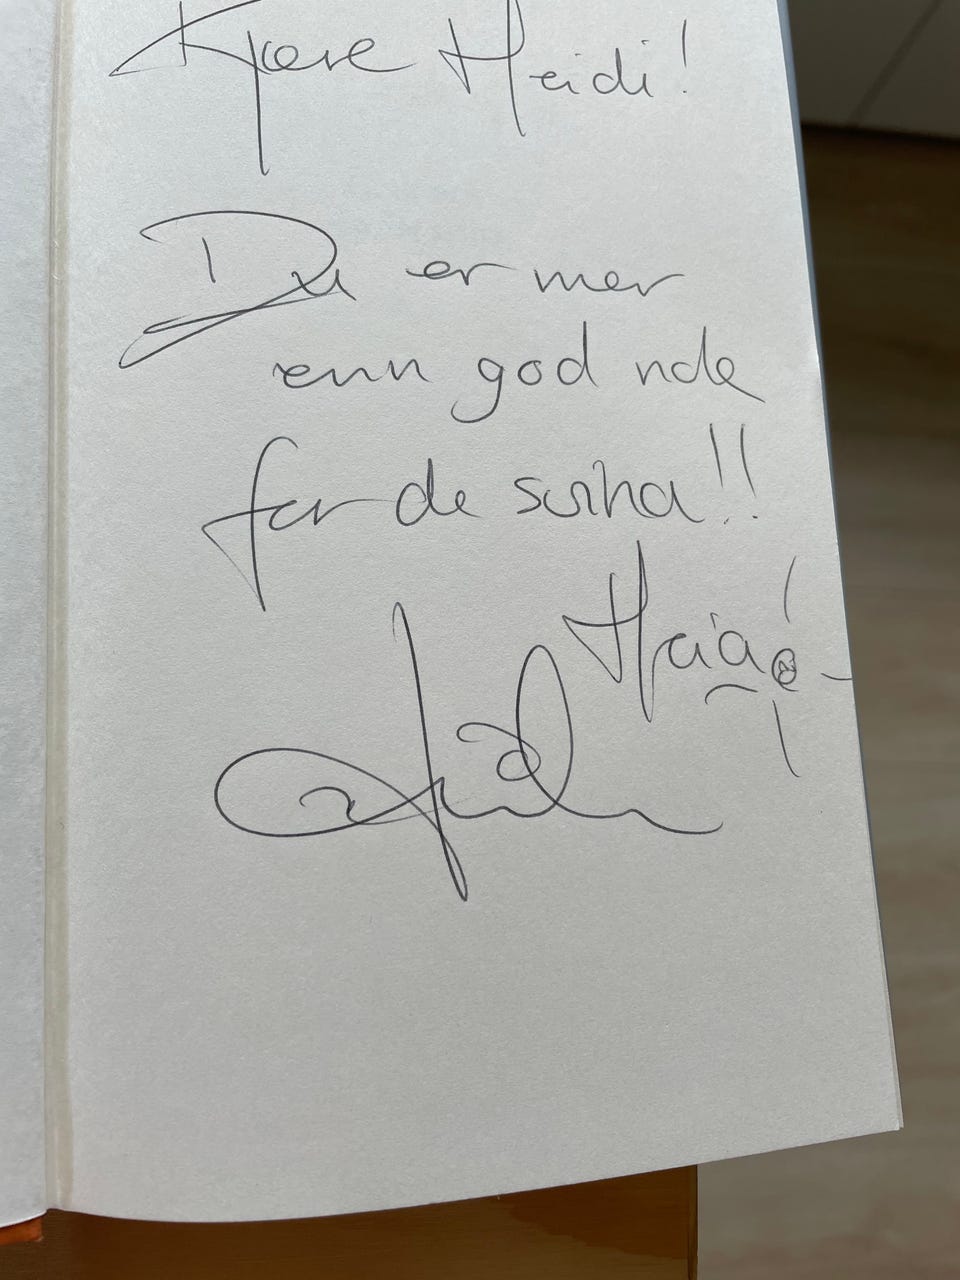 Kjære Heidi!
Du er mer
enn god nok
for de svina!!